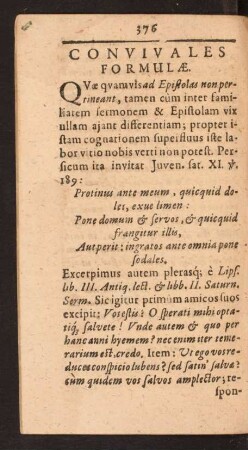 376
CONVIVALES
FORMULÆ.
QVæ qvanvls ad Epistolas non per-
tineant, tamen cùm inter fami-
liarem sermonem & Epistolam vix
ullam ajant differentiam; propter i-
stam cognationem superfluus iste la-
bor vitio nobis verti non potest. Per-
sicum ita invitat Juven. sat. XI. ℣.
189:
Protinus ante meum, quicquid do-
let, exue limen:
Pone domum & servos, & quicquid
frangitur illis,
Aut perit: ingratos ante omnia pone
sodales.
Excerpimus autem plerasq; è Lips.
lib. III. Antiq. lect. & libb. II. Saturn.
Serm. Sic igitur primùm amicos suos
excipit: Vosestis? O sperati mihi opta-
tiq́, salvete! Unde autem & quo per
hanc anni hyemem? nec enim iter teme-
rarium est, credo. Item: Ut ego vos re-
duces conspicio lubens? sed satin' salvæ?
cùm quidem vos salvos amplector; re-
spon-